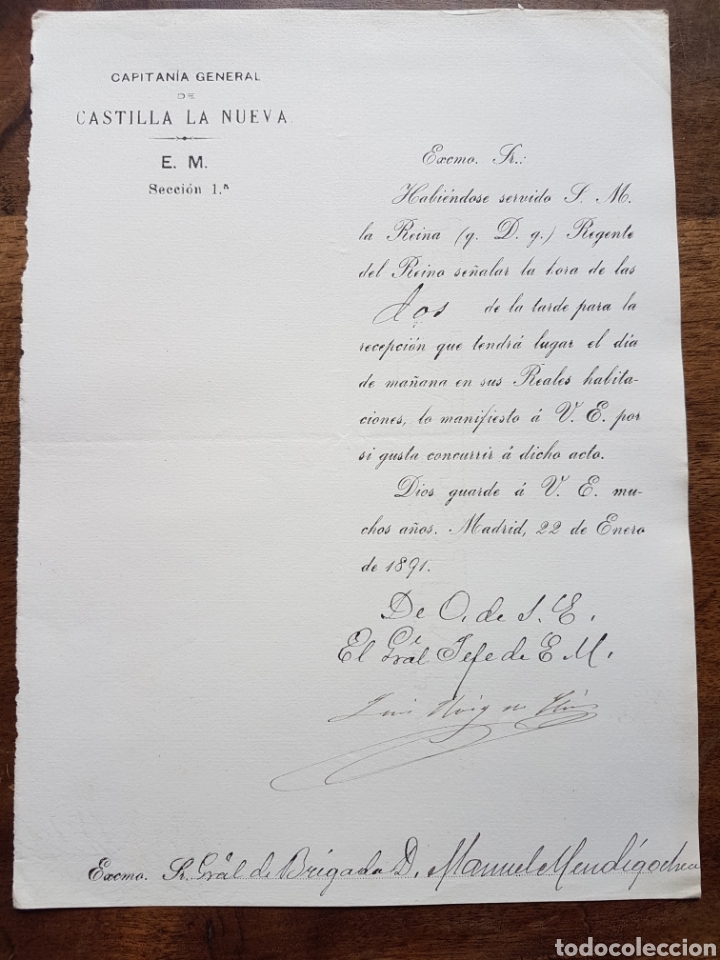 CAPITANÍA GENERAL
DE
CASTILLA LA NUEVA
E. M.
Sección 1.ª
Excmo. Sr.:
Habiéndose servido S. M.
la Reina (q. D. g.) Regente
del Reino señalar la hora de las
dos de la tarde para la
recepción que tendrá lugar el día
de mañana en sus Reales habita-
ciones, lo manifiesto á V. E. por
si gusta concurrir á dicho acto.
Dios guarde á V. E. mu-
chos años. Madrid, 22 de Enero
de 1891.
De O. de S. E.
El Gral Jefe de E. M.
Excmo. Sr. Gral de Brigada D. Manuel Mendigochea
todocoleccion